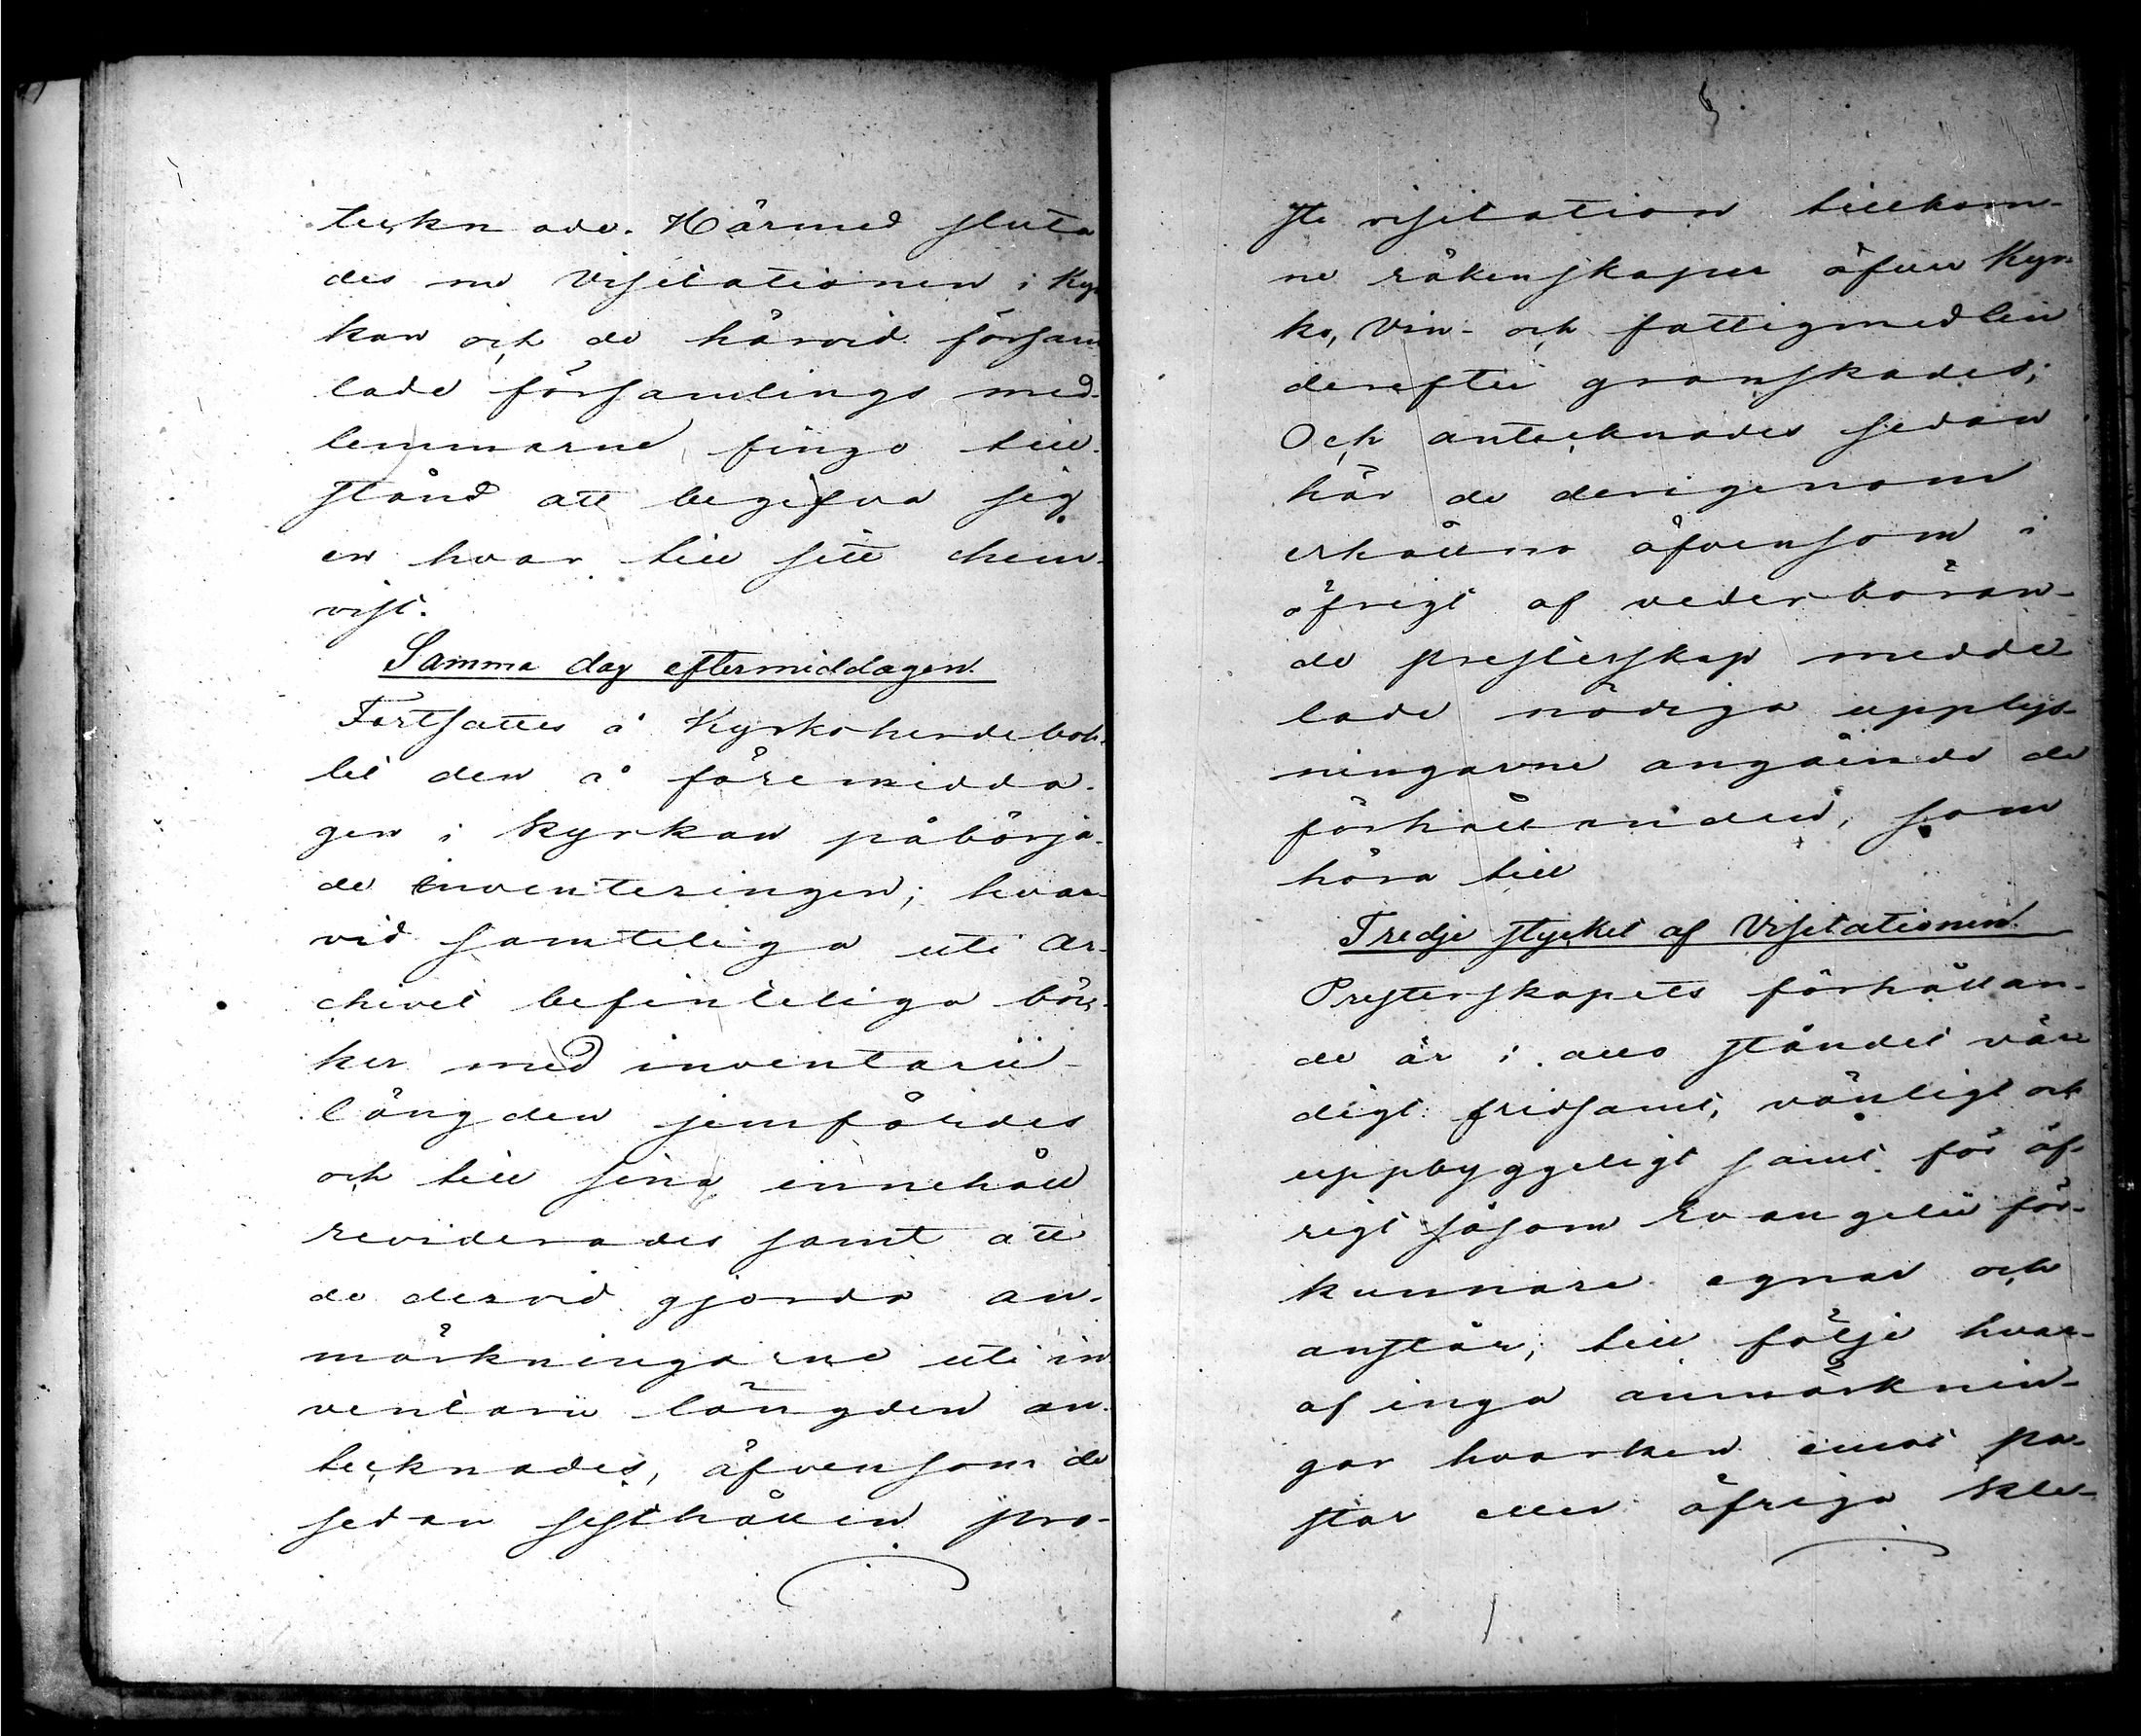 tecknade. Härmed sluta
des nu Visitationen i Kyr
kan och de härvid försam
lade församlings med-
lemmarne fingo till-
stånd att begifva sig
en hvar till sitt hem-
vist.
Samma dag eftermiddagen.
Fortsattes å Kyrkoherdebol-
let den å föremidda-
gen i Kyrkan påbörja-
de inventeringen; hvar-
vid samteliga uti ar-
chivet befinteliga böc-
ker med inventarii
längden jemfördes
och till sina innehåll
reviderades samt att
de dervid gjorda an-
märkningarne uti in
ventarii längden an-
tecknades, äfvensom de
sedan sisthållen pro-
ste visitation tillkom-
ne räkenskaper öfver Kyr-
ko, Vin- och fattigmedlen
derefter granskades;
Och antecknades sedan
här de derigenom
erhållna äfvensom i
öfrigt af vederböran-
de presterskap medde
lade nödiga upplys-
ningarne angående de
förhållanden, som
höra till
Tredje stycket af Visitationen.
Presterskapets förhållan-
de är i allo ståndet vär
digt: fridsamt, vänligt och
uppbyggeligt samt för öf-
rigt såsom Evangelii för-
kunnare egnar och
anstår; till följe hvar-
af inga anmärknin-
gar hvarken emot pa-
stor eller öfriga Kle-